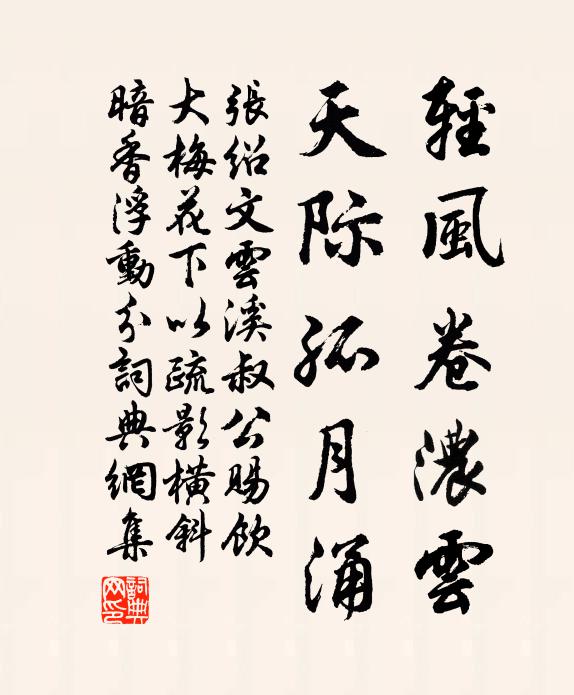 輕風卷濃雲
天际孤月涌
張紹文雲溪叔公賜飲
大梅花下以疏影橫斜
暗香浮動分詞典網集
詞典网印